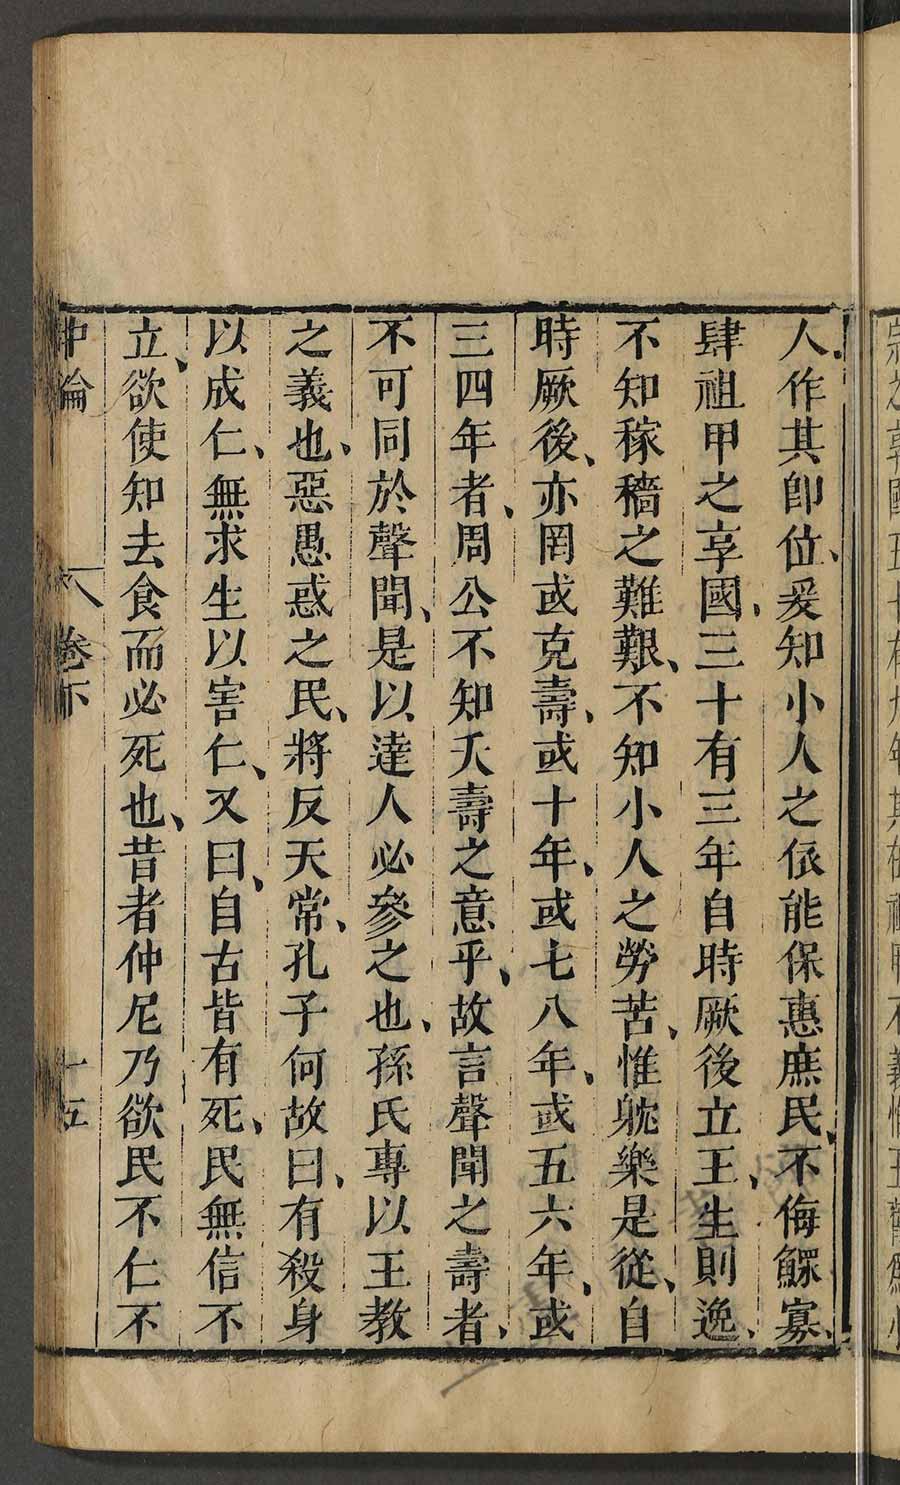 人作其卽位爰知小人之依能保惠庶民不侮鰥寡
肆祖甲之享國三十有三年自時厥後立王生則逸
不知稼穡之難艱不知小人之勞苦惟躭樂是從自
時厥後亦罔或克壽或十年或七八年或五六年或
三四年者周公不知夭壽之意乎故言聲聞之壽者
不可同於聲聞是以達人必參之也孫氏專以王教
之義也惡愚惑之民將反天常孔子何故曰有殺身
以成仁無求生以害仁又曰自古皆有死民無信不
立欲使知去食而必死也昔者仲尼乃欲民不仁不
中論 卷下 十五